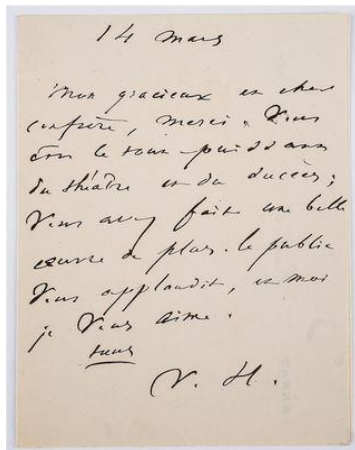 14 mars
Mon gracieux et cher
confrère, merci. Vous
êtes le tout-puissant
du théâtre et du succès ;
Vous avez fait une belle
œuvre de plus. le public
Vous applaudit, et moi
je Vous aime.
tuus
V. H.